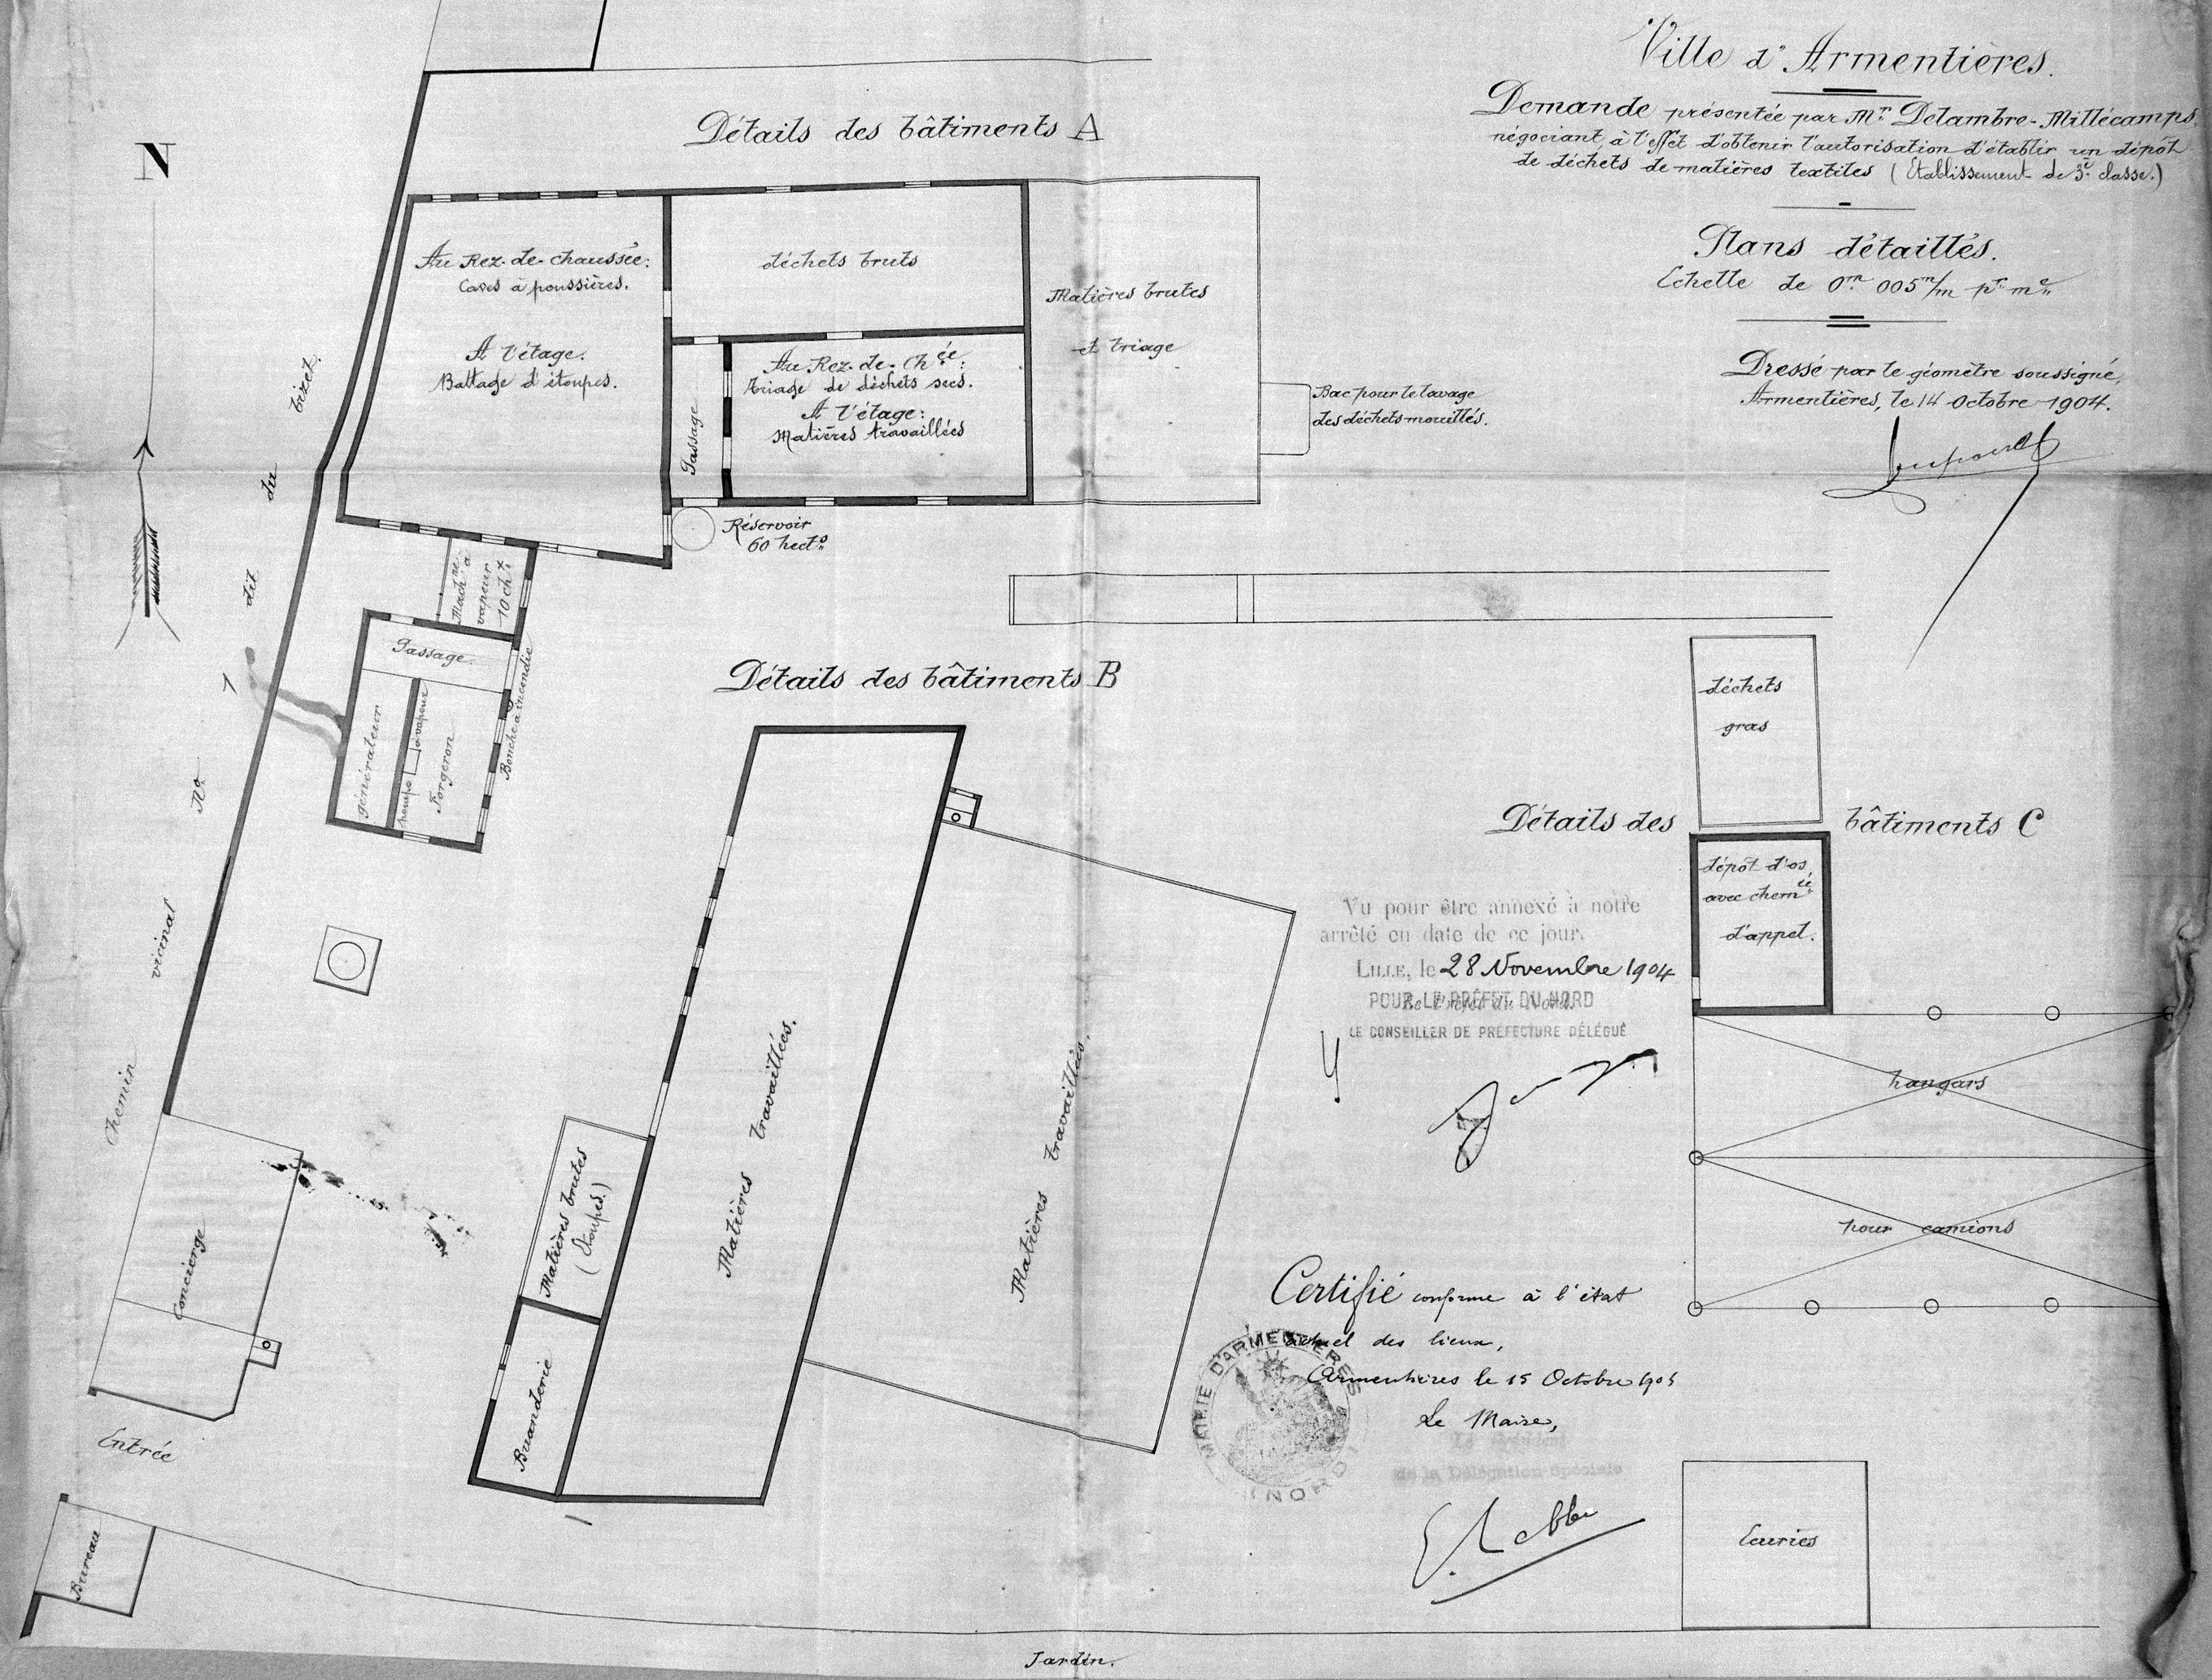 Ville d'Armentières.
Demande présentée par Mr. Delambre-Millécamps,
négociant, à l'effet d'obtenir l'autorisation d'établir un dépôt
de déchets de matières textiles (Etablissement de 3e. classe.)
Plans détaillés.
Echelle de 0m 005m/m pr. me
Dressé par le géomètre soussigné,
Armentières, le 14 Octobre 1904.
N
Détails des bâtiments A
Au Rez-de-chaussée:
Caves à poussières.
A l'étage:
Battage d'étoupes.
déchets bruts
Passage
Au Rez-de-Chée:
Triage de déchets secs.
A l'étage:
Matières travaillées
Matières brutes
et triage
Bac pour le lavage
des déchets mouillés.
Réservoir
60 hecto
Mach.re à
vapeur
10 chx
Passage
générateur
pompe à vapeur
Forgeron
Bouche à incendie
Chemin vicinal No 7 dit du bizet.
Détails des bâtiments B
Matières travaillées.
Matières travaillées.
Matières brutes
(Etoupes.)
Buanderie
Concierge
Entrée
Bureau
Jardin.
déchets
gras
Détails des bâtiments C
dépôt d'os,
avec chemée
d'appel.
hangars
pour camions
Ecuries
Vu pour être annexé à notre
arrêté en date de ce jour.
LILLE, le 28 Novembre 1904
Le Préfet du Nord.
POUR LE PRÉFET DU NORD
LE CONSEILLER DE PRÉFECTURE DÉLÉGUÉ
Certifié conforme à l'état
actuel des lieux,
Armentières le 15 Octobre 1904
Le Maire,
Le Président
de la Délégation Spéciale
MAIRIE D'ARMENTIERES
(NORD)